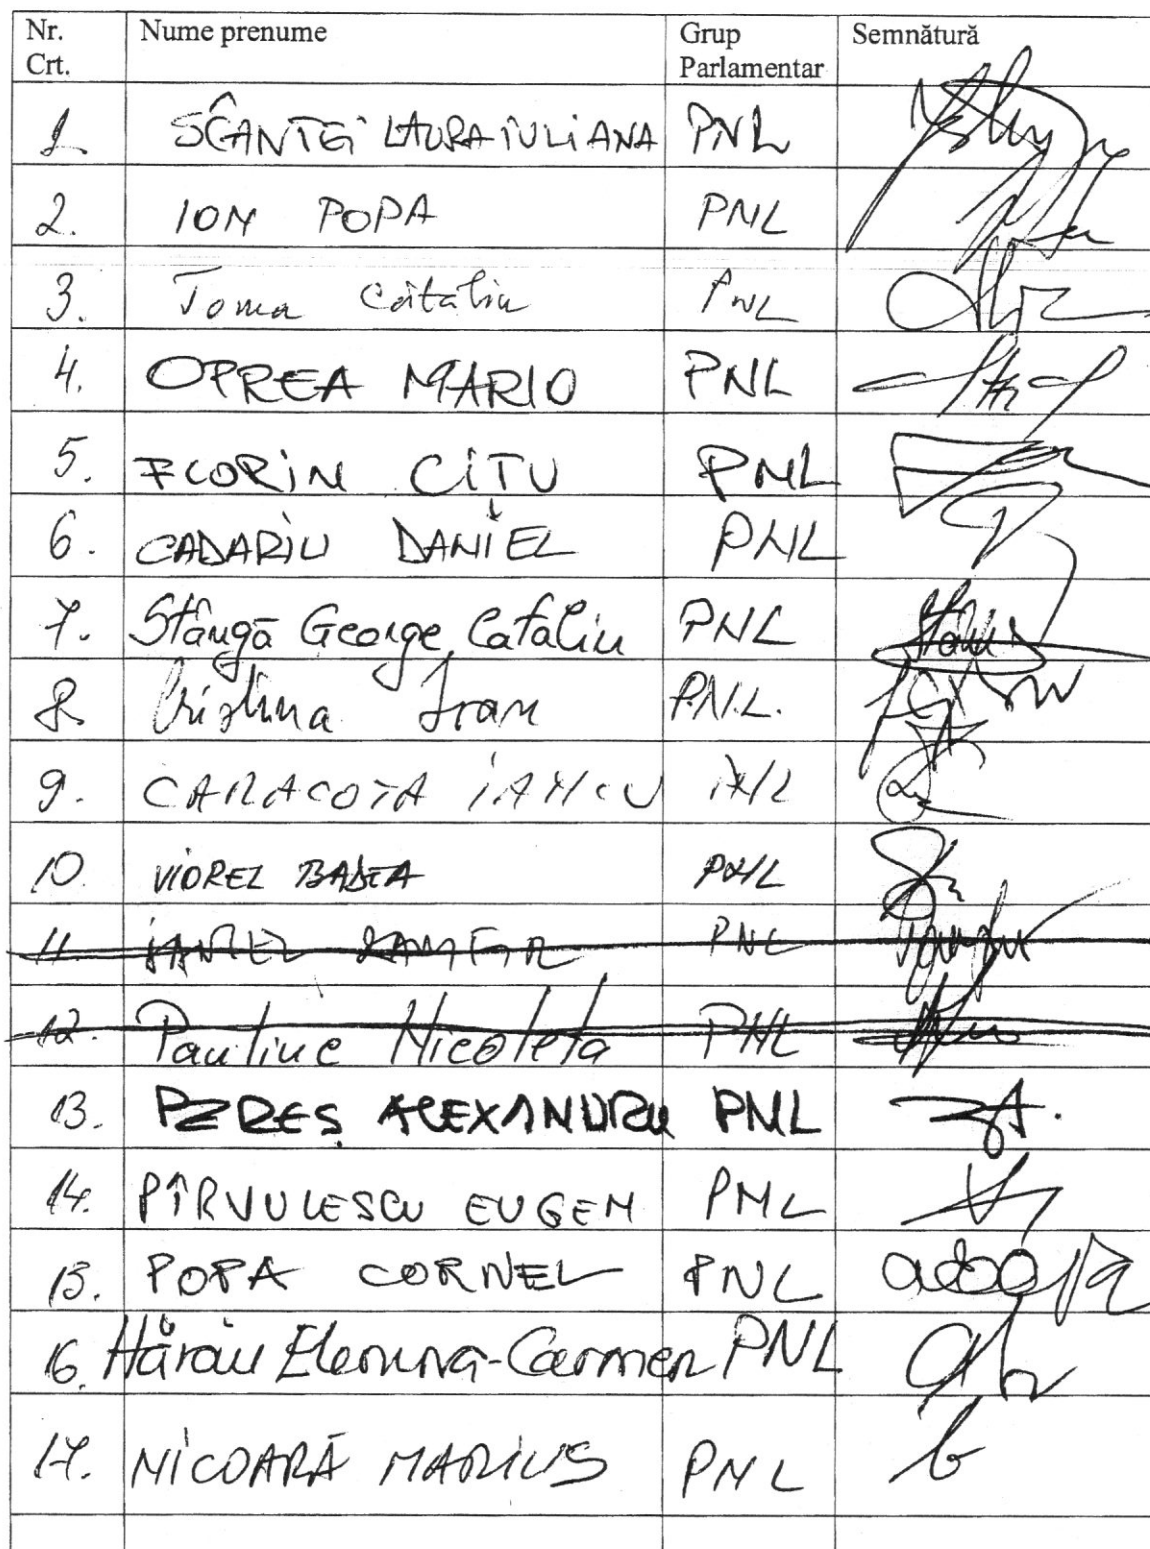 Nr. Crt. Nume prenume Grup Parlamentar Semnătură
1 SCÂNTEI LAURA IULIANA PNL
2. ION POPA PNL
3. Toma Cătălin PNL
4. OPREA MARIO PNL
5. FLORIN CÎȚU PNL
6. CADARIU DANIEL PNL
7. Stângă George Cătălin PNL
8. Cristina Ioan P.N.L.
9. CARACOTA IANCU PNL
10. VIOREL BADEA PNL
11 PNL
12. Pauliuc Nicoleta PNL
13. PEREȘ ALEXANDRU PNL
14. PÎRVULESCU EUGEN PNL
15. POPA CORNEL PNL
16. Hărău Eleonora-Carmen PNL
17. NICOARĂ MARIUS PNL